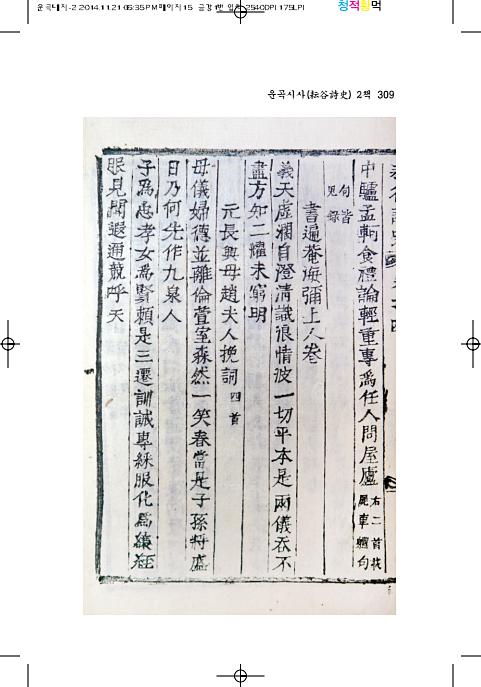 운곡대지-2 2014.11.21 05:35 PM 페이지15
2540DPI 175LPI
청적황먹
운곡시사(耘谷詩史) 2책 309
中驢孟軻食禮論輕重專爲任人問屋廬 右二首枝
句皆
見錄
書遍菴海彌上人卷
義天虛濶自澄淸識浪情波一切平本是兩儀呑不
盡方知二耀未窮明
元長興母趙夫人挽詞 四首
母儀婦德並離倫萱室森然一笑春當是子孫將盛
日乃何先作九泉人
子爲忠孝女爲賢賴是三遷訓誠專綵服化爲縗絰
眼見聞遐邇競呼天